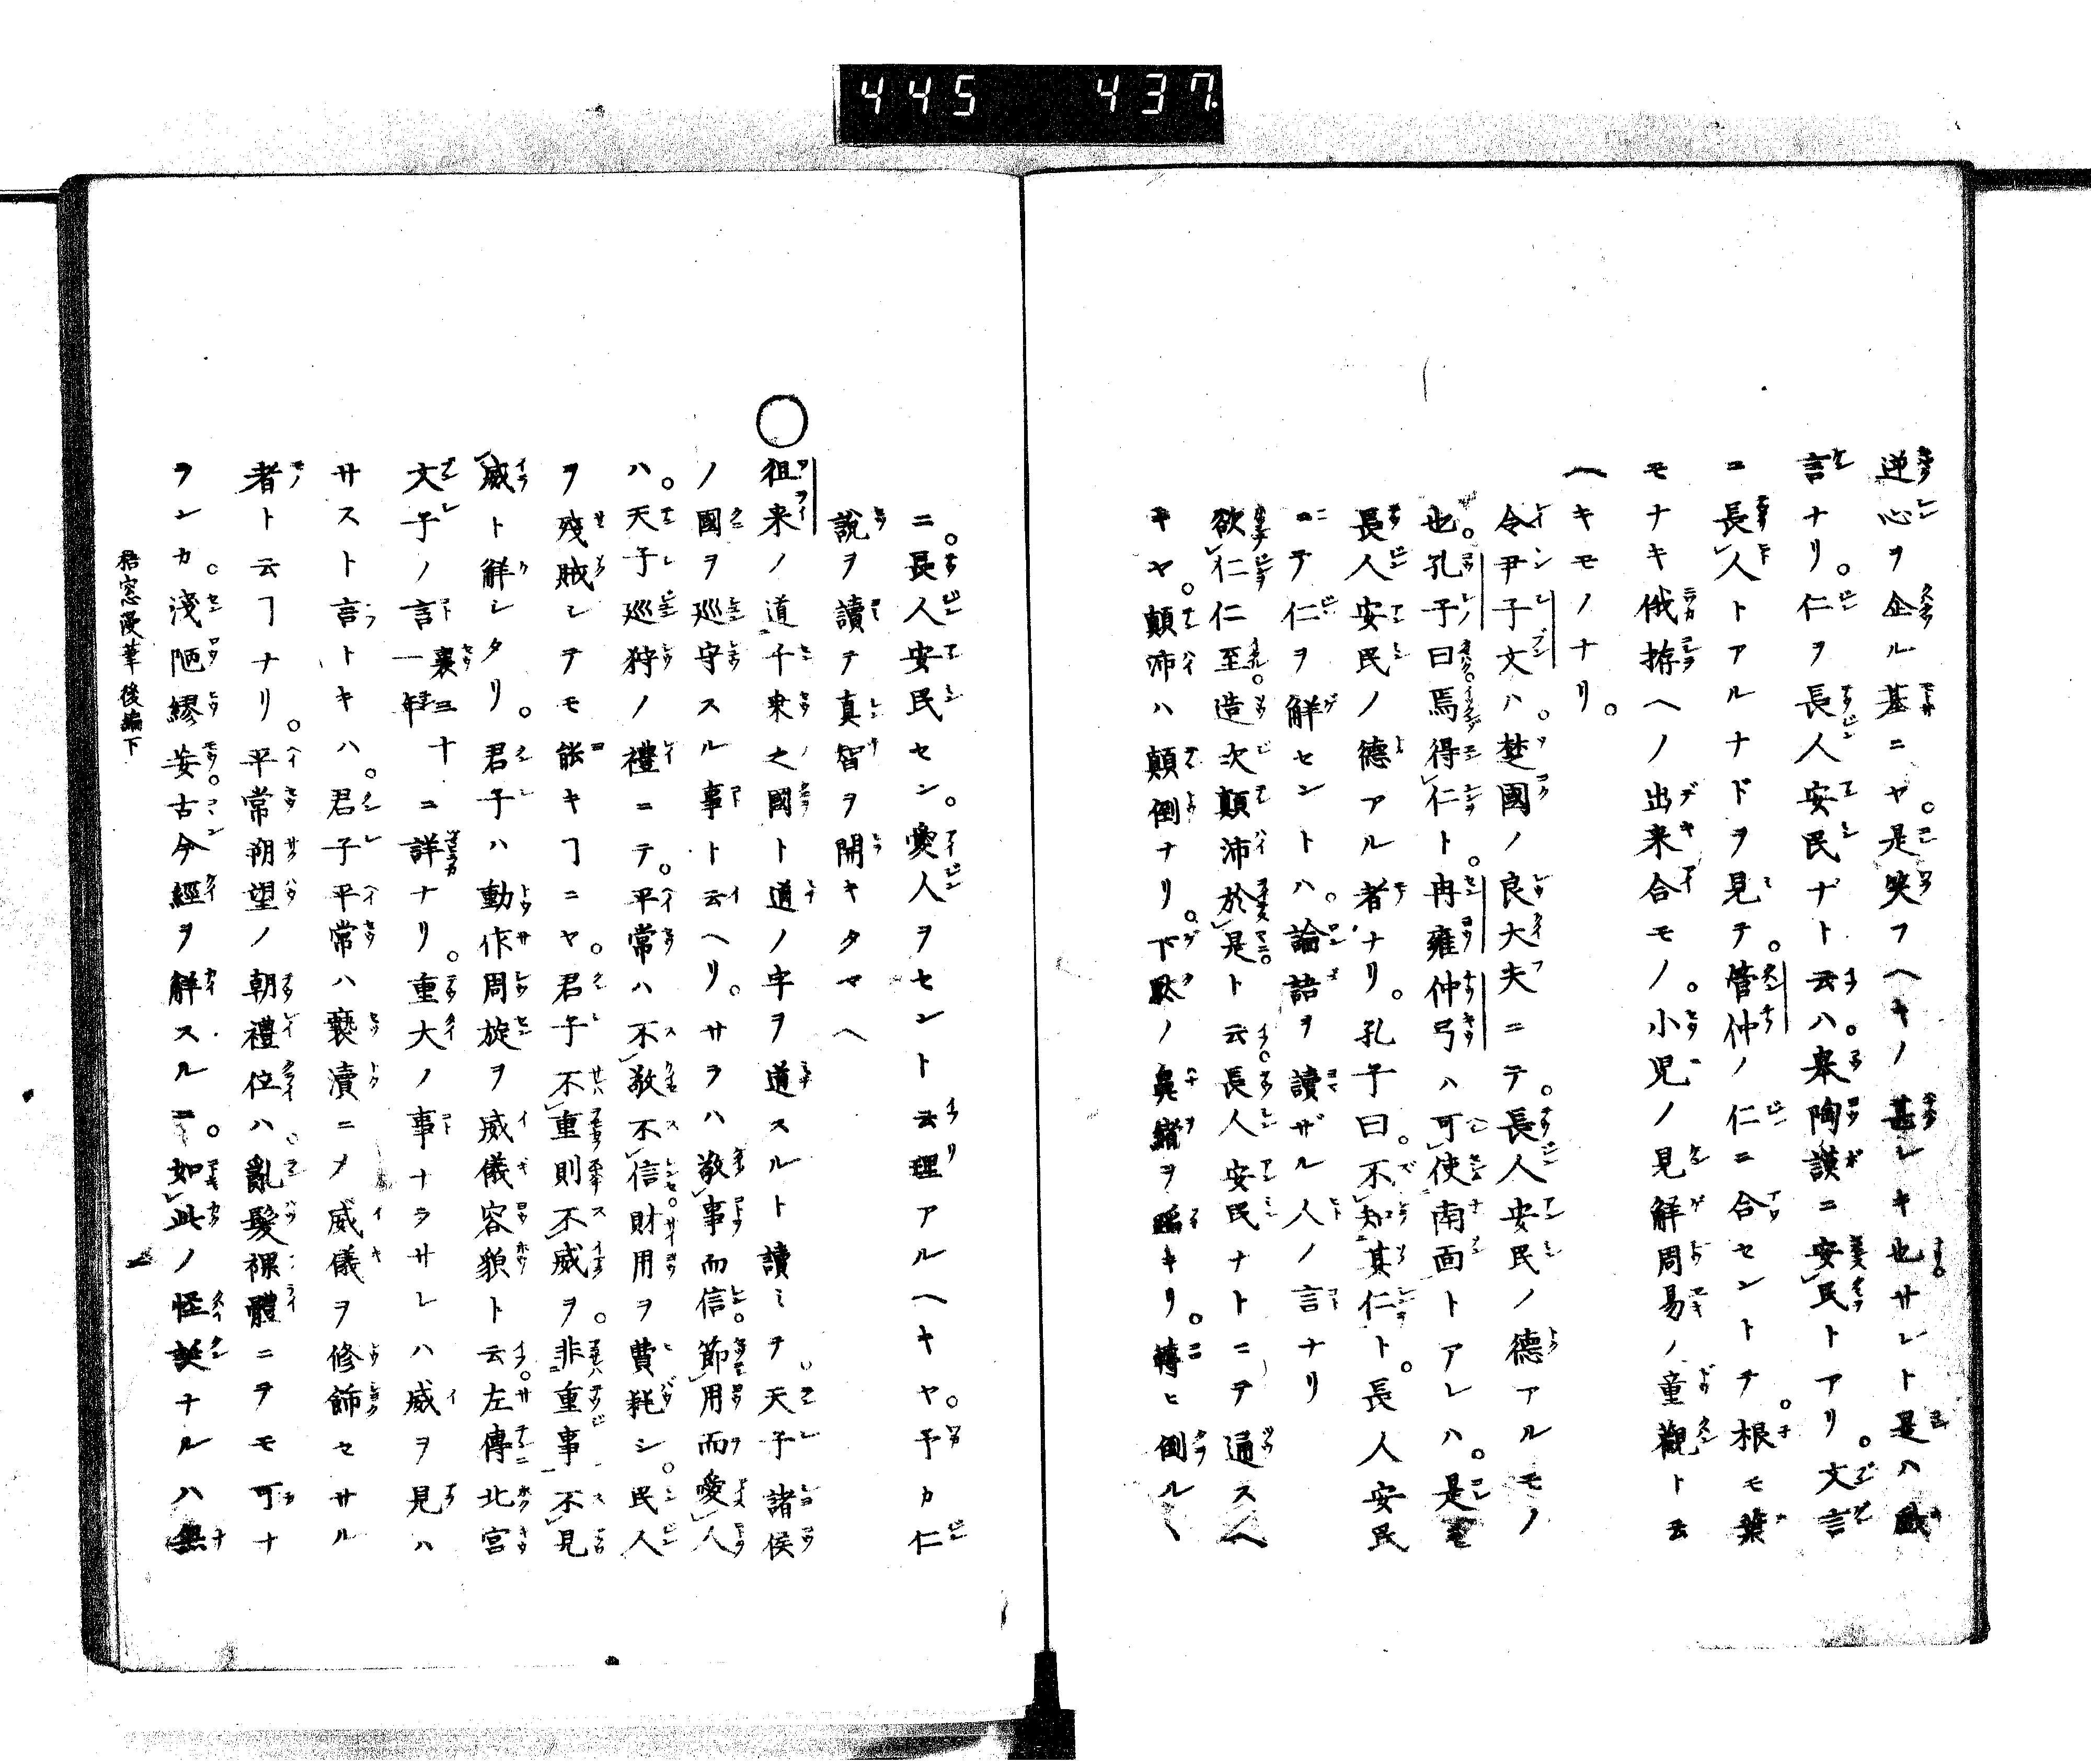 445 437
逆心ヲ企ル基ニヤ。是笑フヘキノ甚シキ也サレト是ハ戯
言ナリ。仁ヲ長人安民ナト云ハ。皐陶謨ニ安民トアリ。文言
ニ長人トアルナドヲ見テ。管仲ノ仁ニ合セントテ。根モ葉
モナキ俄拵ヘノ出来合モノ。小児ノ見解周易ノ童觀ト云
ヘキモノナリ。
令尹子文ハ。楚國ノ良大夫ニテ。長人安民ノ德アルモノ
也。孔子曰焉得仁ト。冉雍仲弓ハ可使南面トアレハ。是
長人安民ノ德アル者ナリ。孔子曰。不知其仁ト。長人安民
ニテ仁ヲ解セントハ。論語ヲ讀ザル人ノ言ナリ
欲仁仁至造次顛沛於是ト云長人安民ナトニテ通スヘ
キヤ。顛沛ハ顛倒ナリ。下駄ノ鼻緒ヲ蹈キリ。轉ヒ倒ルヽ
ニ。長人安民セン。愛人ヲセント云理アルヘキヤ。予カ仁
説ヲ讀テ真智ヲ開キタマヘ
○祖来ノ道千乘之國ト道ノ字ヲ道スルト讀ミテ。天子諸侯
ノ國ヲ巡守スル事ト云ヘリ。サヲハ敬事而信。節用而愛人
ハ。天子巡狩ノ禮ニテ。平常ハ不敬不信財用ヲ費耗シ。民人
ヲ殘賊シテモ能キヿニヤ。君子不重則不威ヲ。非重事不見
威ト解シタリ。君子ハ動作周旋ヲ威儀容貌ト云。左傳北宮
文子ノ言襄三十一年ニ詳ナリ。重大ノ事ナラサレハ威ヲ見ハ
サスト言トキハ。君子平常ハ褻瀆ニメ威儀ヲ修飾セサル
者ト云ヿナリ。平常朔望ノ朝禮位ハ。亂髮裸體ニヲモ可ナ
ランカ。淺陋繆妄。古今經ヲ解スルニ。如此ノ怪誕ナルハ無
梧窓漫筆後編下